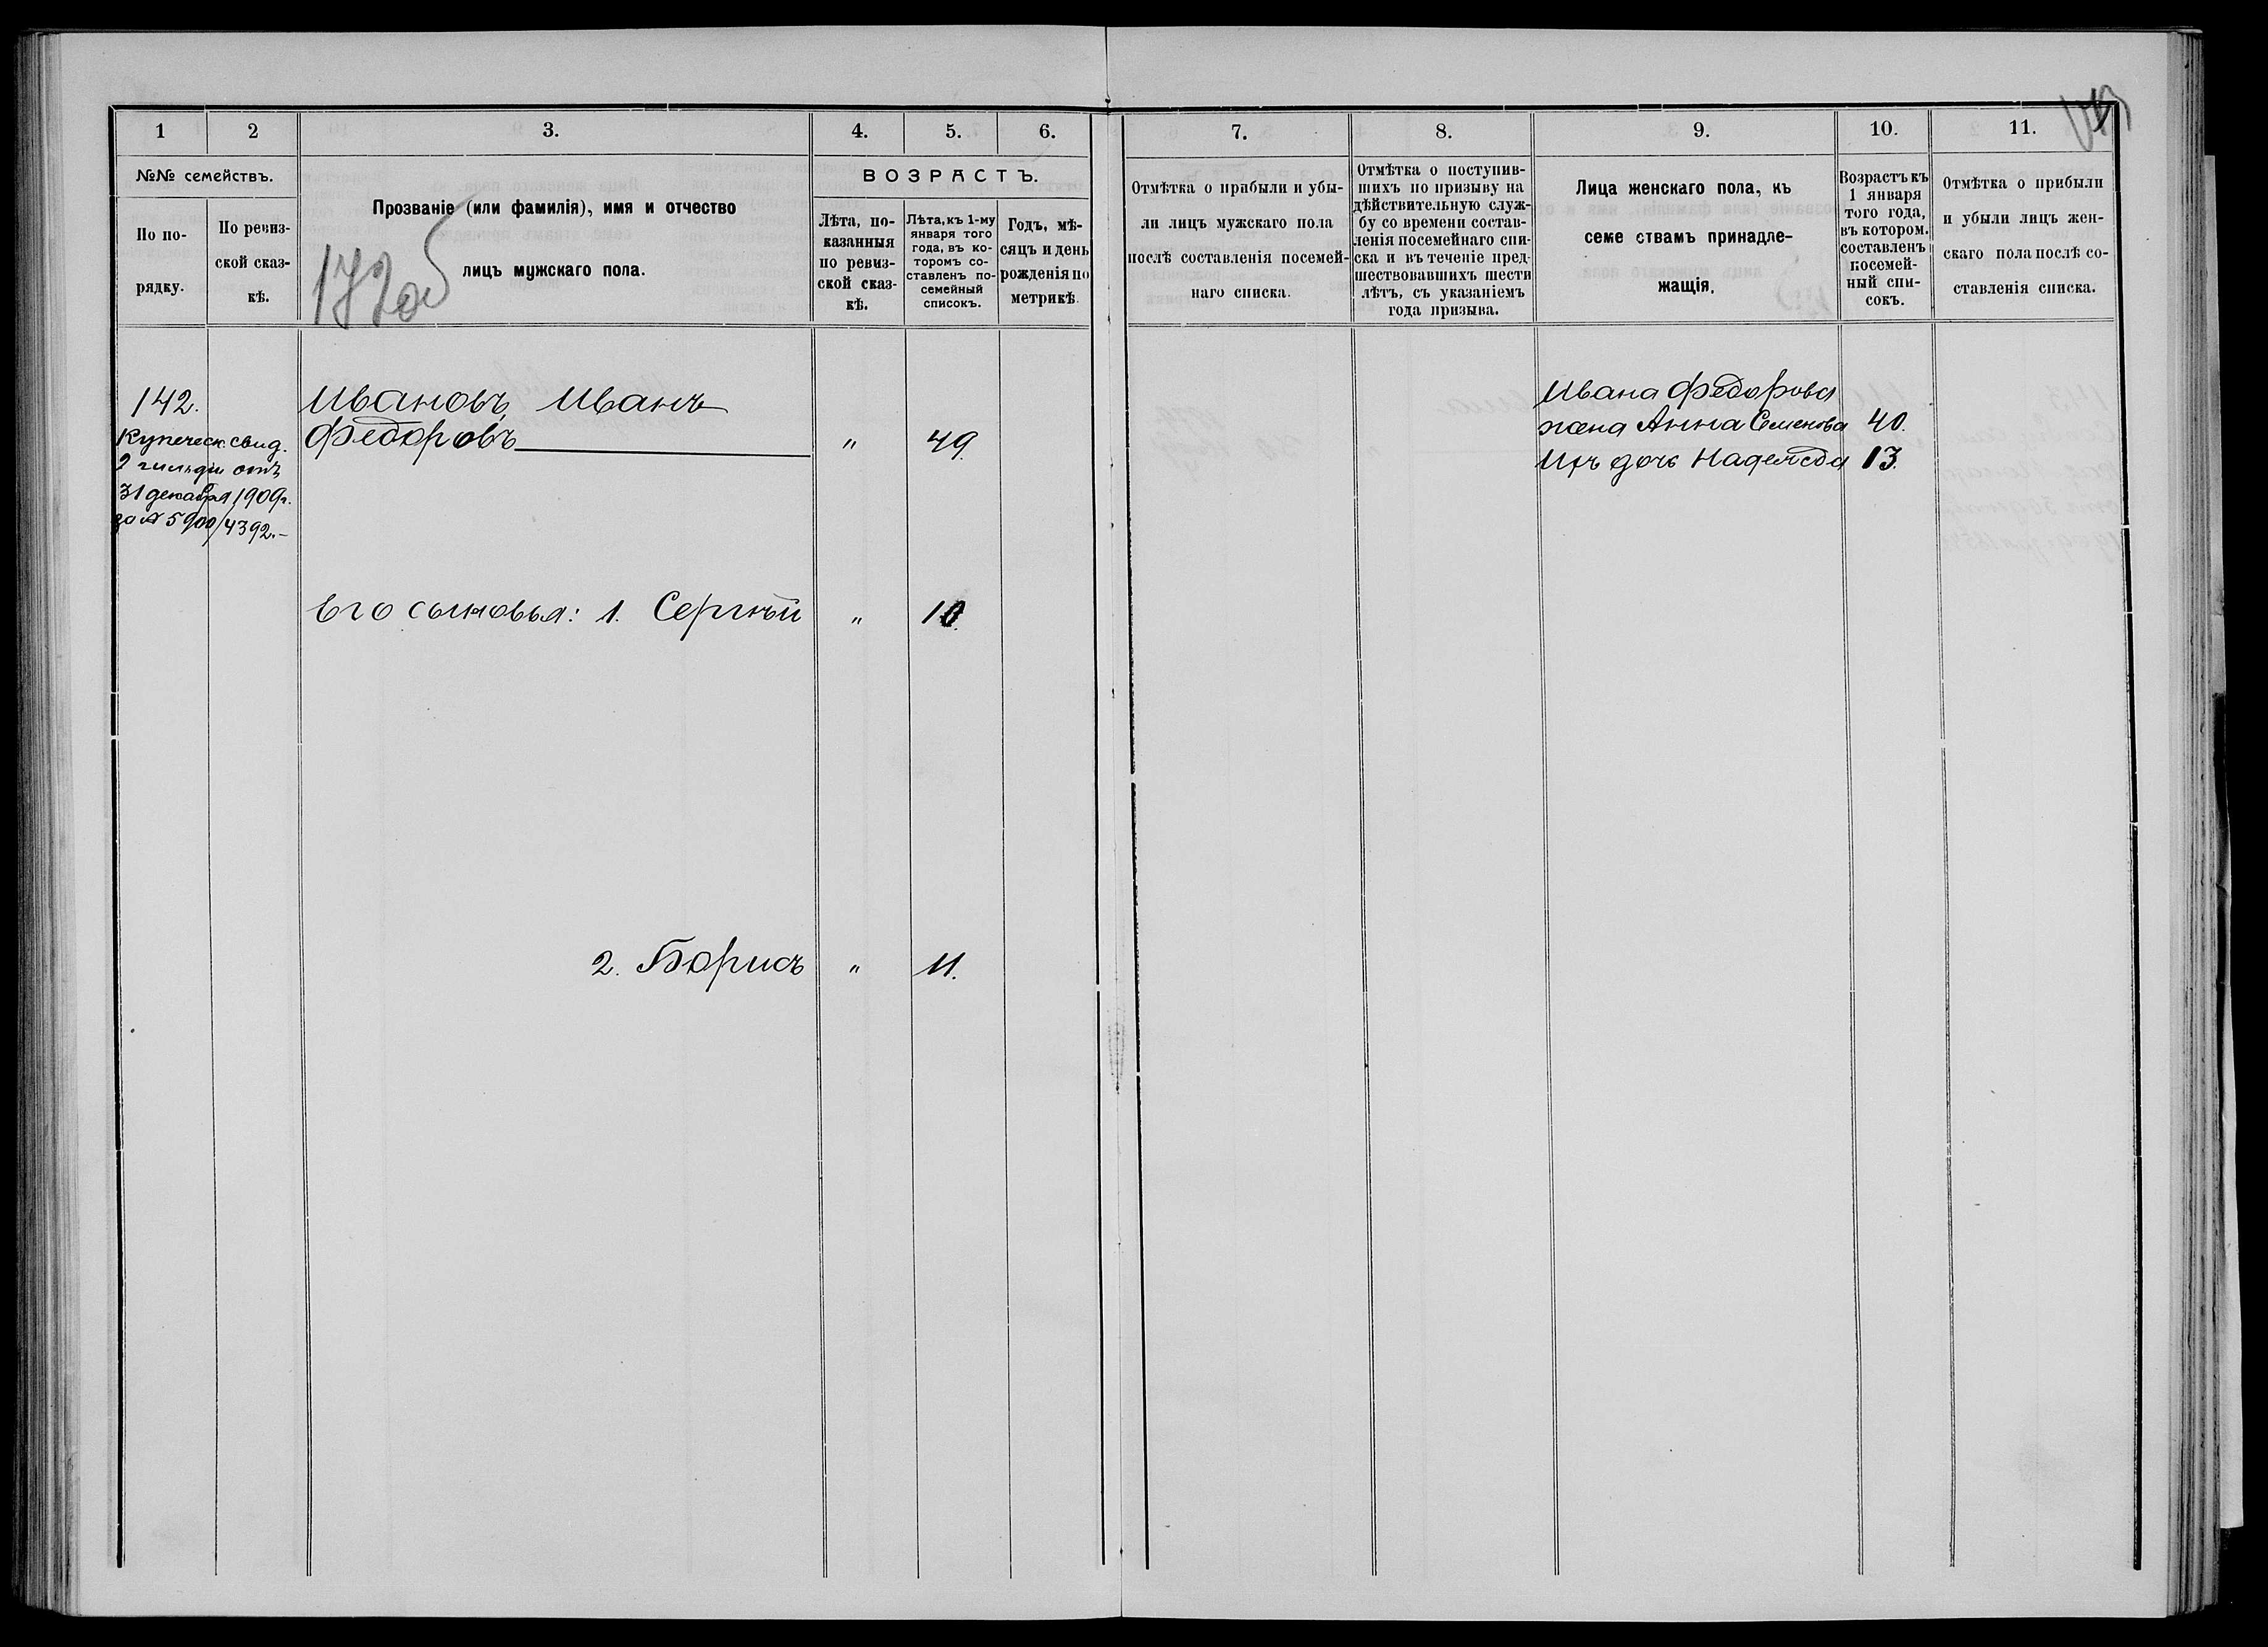 1
2
3.
4.
5.
6.
№№ семействъ.
По по-
рядку.
По ревиз-
ской сказ-
кѣ.
Прозваніе (или фамилія), имя и отчество
лицъ мужскаго пола.
ВОЗРАСТЪ.
Лѣта, по-
казанныя
по ревиз-
ской сказ-
кѣ.
Лѣта, къ 1-му
января того
года, въ ко-
торомъ со-
ставленъ по-
семейный
списокъ.
Годъ, мѣ-
сяцъ и день
рожденія по
метрикѣ.
142.
Купеческ. свид.
2 гильдіи отъ
31 декабря 1909 г.
за № 5900/4392.–
Ивановъ, Иванъ
Федоровъ
"
49.
Его сыновья: 1. Сергѣй
"
2. Борисъ
"
11.
7.
8.
9.
10.
11.
Отмѣтка о прибыли и убы-
ли лицъ мужскаго пола
послѣ составленія посемей-
наго списка.
Отмѣтка о поступив-
шихъ по призыву на
дѣйствительную служ-
бу со времени состав-
ленія посемейнаго спи-
ска и въ теченіе пред-
шествовавшихъ шести
лѣтъ, съ указаніемъ
года призыва.
Лица женскаго пола, къ
семе ствамъ принадле-
жащія.
Возрастъ къ
1 января
того года,
въ котором.
составленъ
посемей-
ный спи-
сокъ.
Отмѣтка о прибыли
и убыли лицъ жен-
скаго пола послѣ со-
ставленія списка.
Ивана Федорова
жена Анна Семенова 40.
Ихъ дочь Надежда 13.